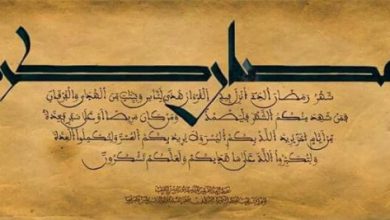 مضان كر
شهر رمضان الذي أنزل فيه القرءان هدى للناس وبينات من الهدى والفرقان
فمن شهد منكم الشهر فليصمه ومن كان مريضا أو على سفر فعدة
من أيام أخر يريد الله بكم اليسر ولا يريد بكم العسر ولتكملوا العدة
ولتكبروا الله على ما هداكم ولعلكم تشكرون